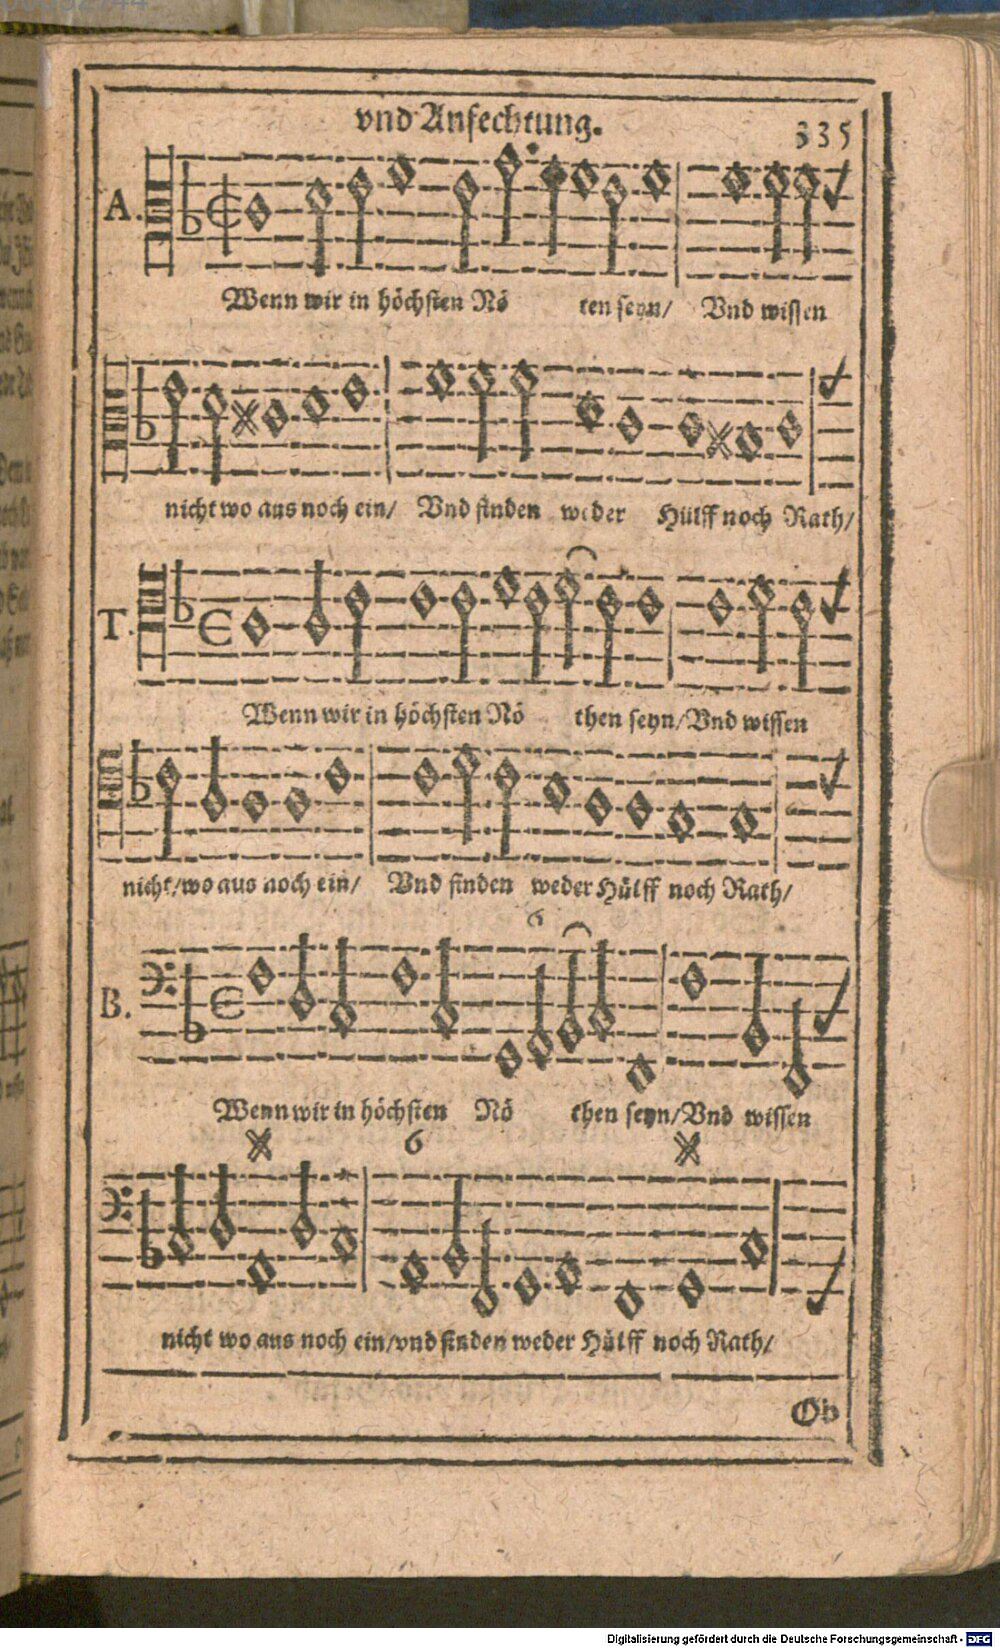 vnd Anfechtung.
335
A.
Wenn wir in höchsten Nö ten seyn/ Vnd wissen
nicht wo aus noch ein/ Vnd finden weder Hülff noch Rath/
T.
Wenn wir in höchsten Nö then seyn/ Vnd wissen
nicht/ wo aus noch ein/ Vnd finden weder Hülff noch Rath/
6
B.
Wenn wir in höchsten Nö then seyn/ Vnd wissen
6
nicht wo aus noch ein/ vnd finden weder Hülff noch Rath/
Ob
Digitalisierung gefördert durch die Deutsche Forschungsgemeinschaft - DFG